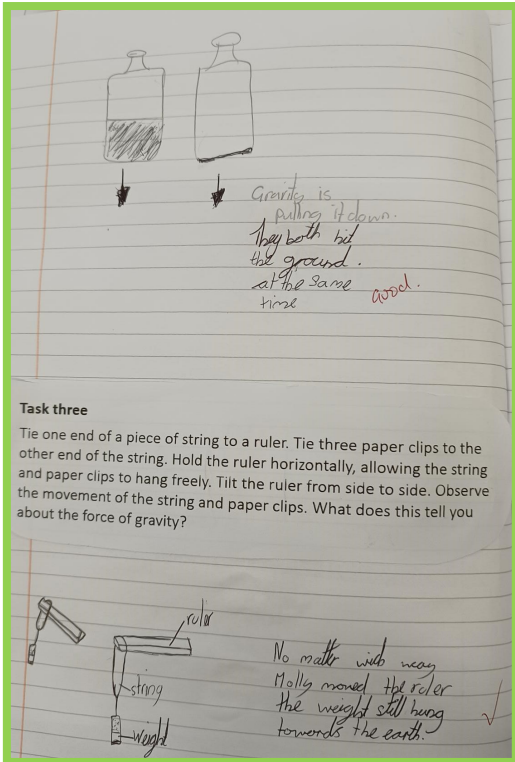 Gravity is
pulling it down.
They both hit
the ground.
at the same
time
Good.
Task three
Tie one end of a piece of string to a ruler. Tie three paper clips to the
other end of the string. Hold the ruler horizontally, allowing the string
and paper clips to hang freely. Tilt the ruler from side to side. Observe
the movement of the string and paper clips. What does this tell you
about the force of gravity?
ruler
string
weight
No matter wich way
Molly moved the ruler
the weight still hung
towords the earth.